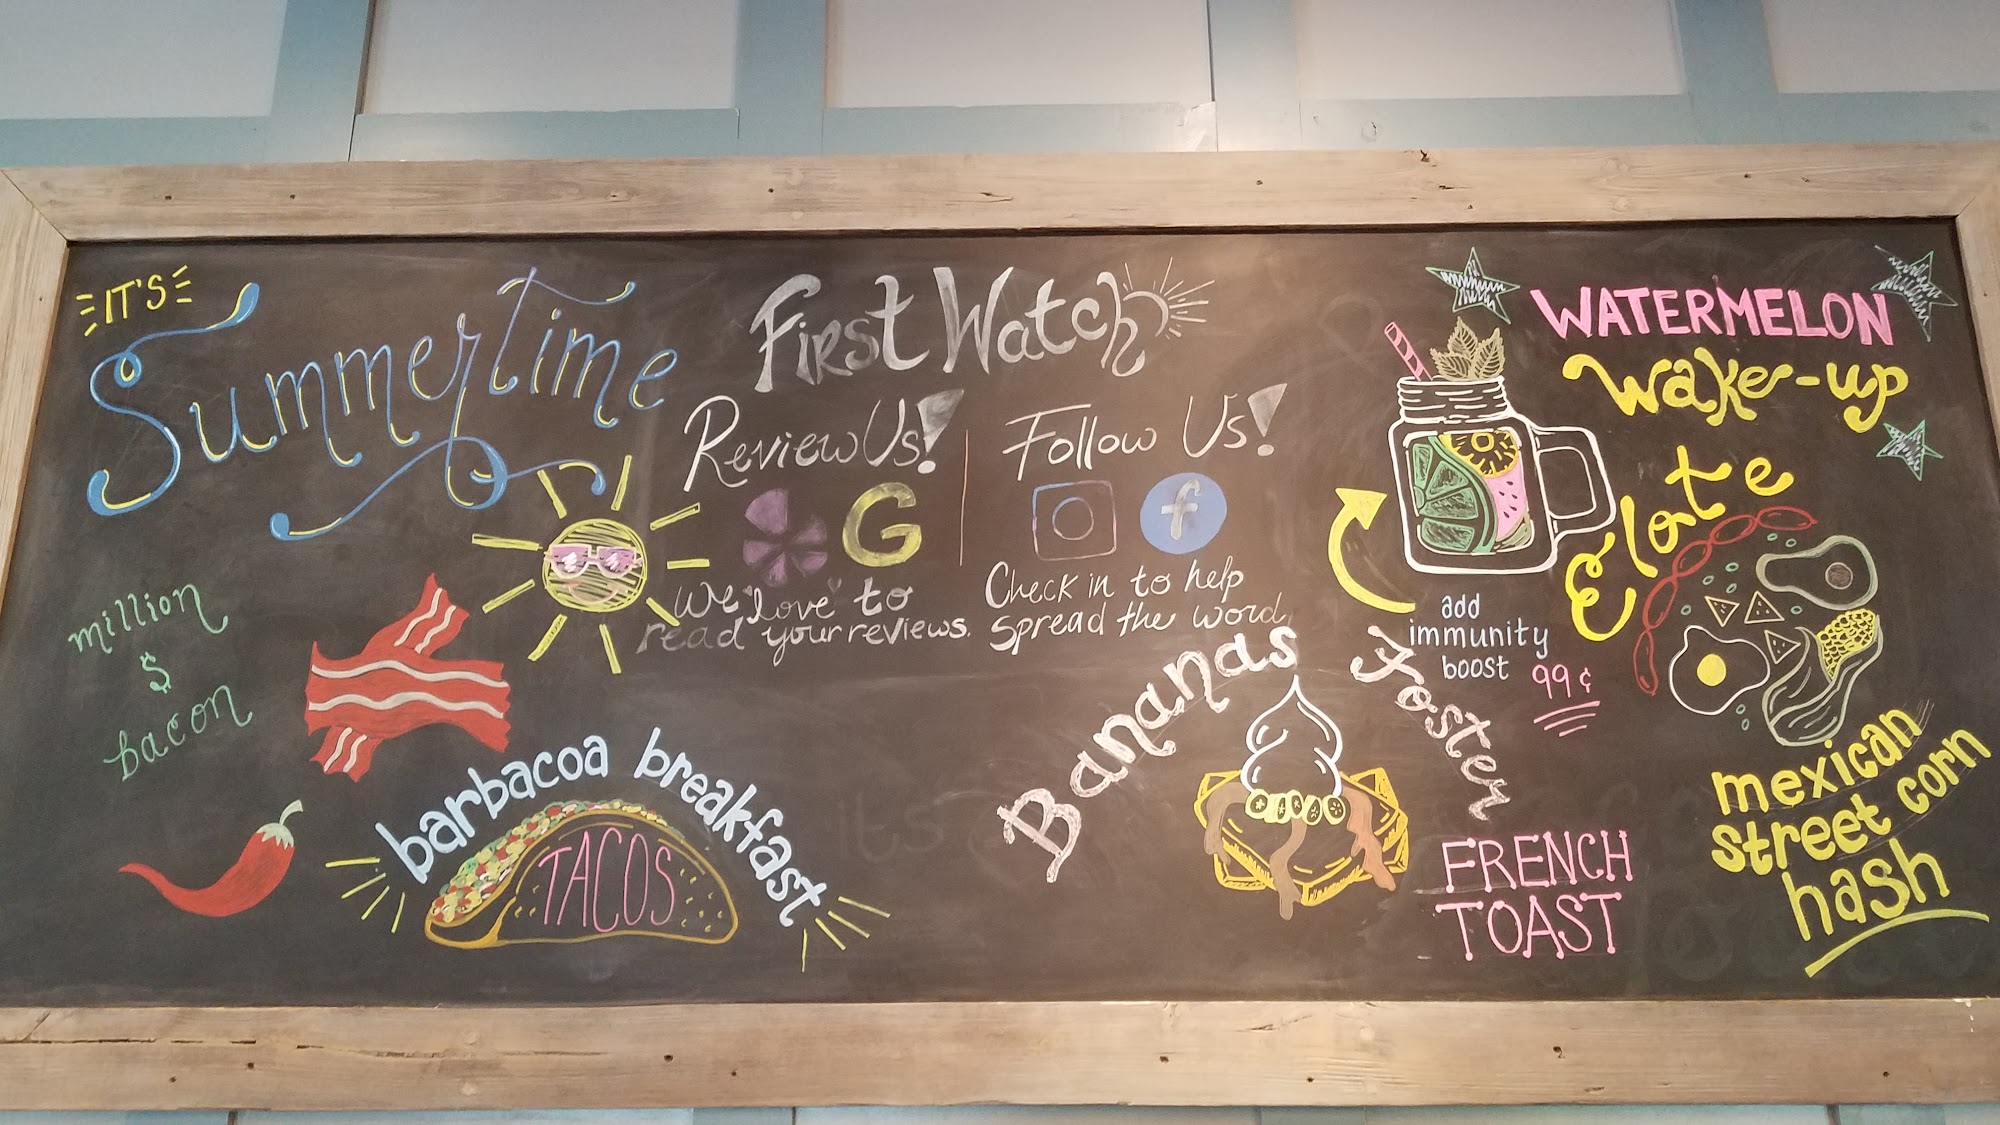 IT'S
Summertime
First Watch
Review Us!
G
We love to
read your reviews.
Follow Us!
f
Check in to help
spread the word
million
$
bacon
barbacoa breakfast
TACOS
Bananas Foster
FRENCH
TOAST
WATERMELON
Wake-up
add
immunity
boost
99¢
Elote
mexican
street corn
hash